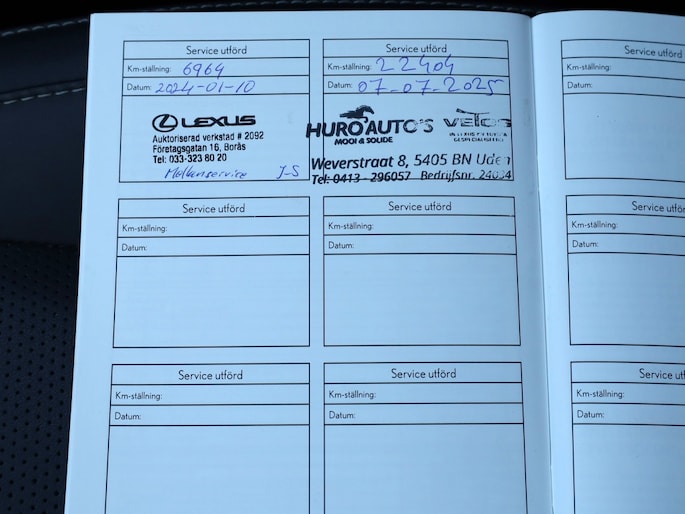 Service utförd
Km-ställning: 6964
Datum: 2024-01-10
LEXUS
Auktoriserad verkstad # 2092
Företagsgatan 16, Borås
Tel: 033-323 80 20
Mellanservice J-S
Service utförd
Km-ställning: 22404
Datum: 07-07-2025
HURO AUTO'S
MOOI & SOLIDE
Weverstraat 8, 5405 BN Uden
Tel: 0413 - 296057 Bedrijfsnr. 24004
Service utförd
Km-ställning:
Datum:
Service utförd
Km-ställning:
Datum:
Service utförd
Km-ställning:
Datum:
Service utförd
Km-ställning:
Datum:
Service utförd
Km-ställning:
Datum:
Service utför
Km-ställning:
Datum:
Service utf
Km-ställning:
Datum: